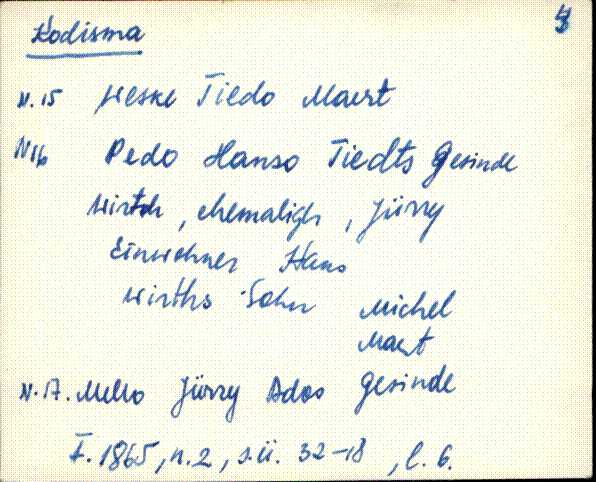 Kodisma
4
N. 15 Weske Tiedo Maert
N16 Pedo Hanso Tiedts Gesinde
Wirth, ehemaliger, Jürry
Einwohner Hans
Wirths Sohn Michel
Maert
N. 17. Mello Jürry Ados Gesinde
I. 1865, n. 2, s.ü. 32-18, l. 6.